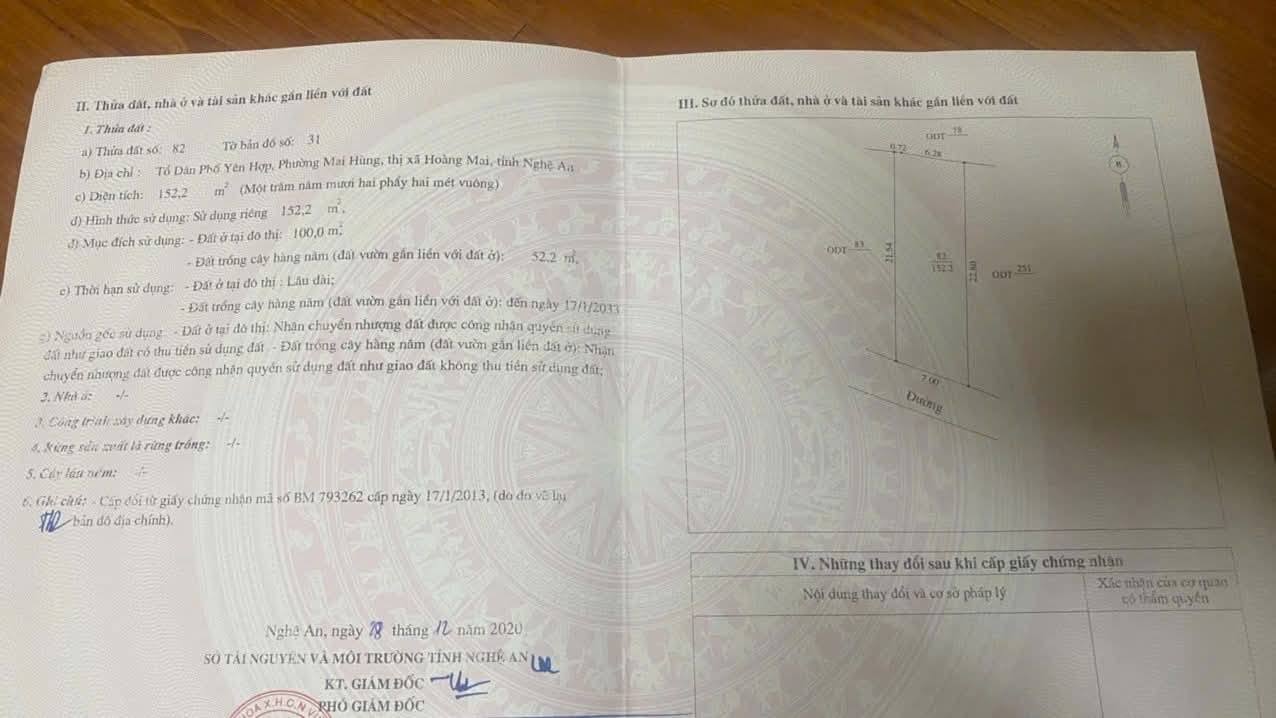 II. Thửa đất, nhà ở và tài sản khác gắn liền với đất
1. Thửa đất :
a) Thửa đất số: 82 Tờ bản đồ số: 31
b) Địa chỉ : Tổ Dân Phố Yên Hợp, Phường Mai Hùng, thị xã Hoàng Mai, tỉnh Nghệ An
c) Diện tích: 152,2 m² (Một trăm năm mươi hai phẩy hai mét vuông)
d) Hình thức sử dụng: Sử dụng riêng 152,2 m²,
đ) Mục đích sử dụng: - Đất ở tại đô thị: 100,0 m²,
- Đất trồng cây hàng năm (đất vườn gắn liền với đất ở): 52,2 m²,
e) Thời hạn sử dụng: - Đất ở tại đô thị : Lâu dài;
- Đất trồng cây hàng năm (đất vườn gắn liền với đất ở): đến ngày 17/1/2033
g) Nguồn gốc sử dụng: - Đất ở tại đô thị: Nhận chuyển nhượng đất được công nhận quyền sử dụng
đất như giao đất có thu tiền sử dụng đất. - Đất trồng cây hằng năm (đất vườn gắn liền đất ở): Nhận
chuyển nhượng đất được công nhận quyền sử dụng đất như giao đất không thu tiền sử dụng đất;
2. Nhà ở: -/-
3. Công trình xây dựng khác: -/-
4. Rừng sản xuất là rừng trồng: -/-
5. Cây lâu năm: -/-
6. Ghi chú: - Cấp đổi từ giấy chứng nhận mã số BM 793262 cấp ngày 17/1/2013, (do đo vẽ lại
bản đồ địa chính).
Nghệ An, ngày 28 tháng 12 năm 2020
SỞ TÀI NGUYÊN VÀ MÔI TRƯỜNG TỈNH NGHỆ AN
KT. GIÁM ĐỐC
PHÓ GIÁM ĐỐC
III. Sơ đồ thửa đất, nhà ở và tài sản khác gắn liền với đất
ODT 78
0.72 6.28
B
ODT 83
21.54
82
152.2
22.80
ODT 251
7.00
Đường
IV. Những thay đổi sau khi cấp giấy chứng nhận
Nội dung thay đổi và cơ sở pháp lý
Xác nhận của cơ quan
có thẩm quyền